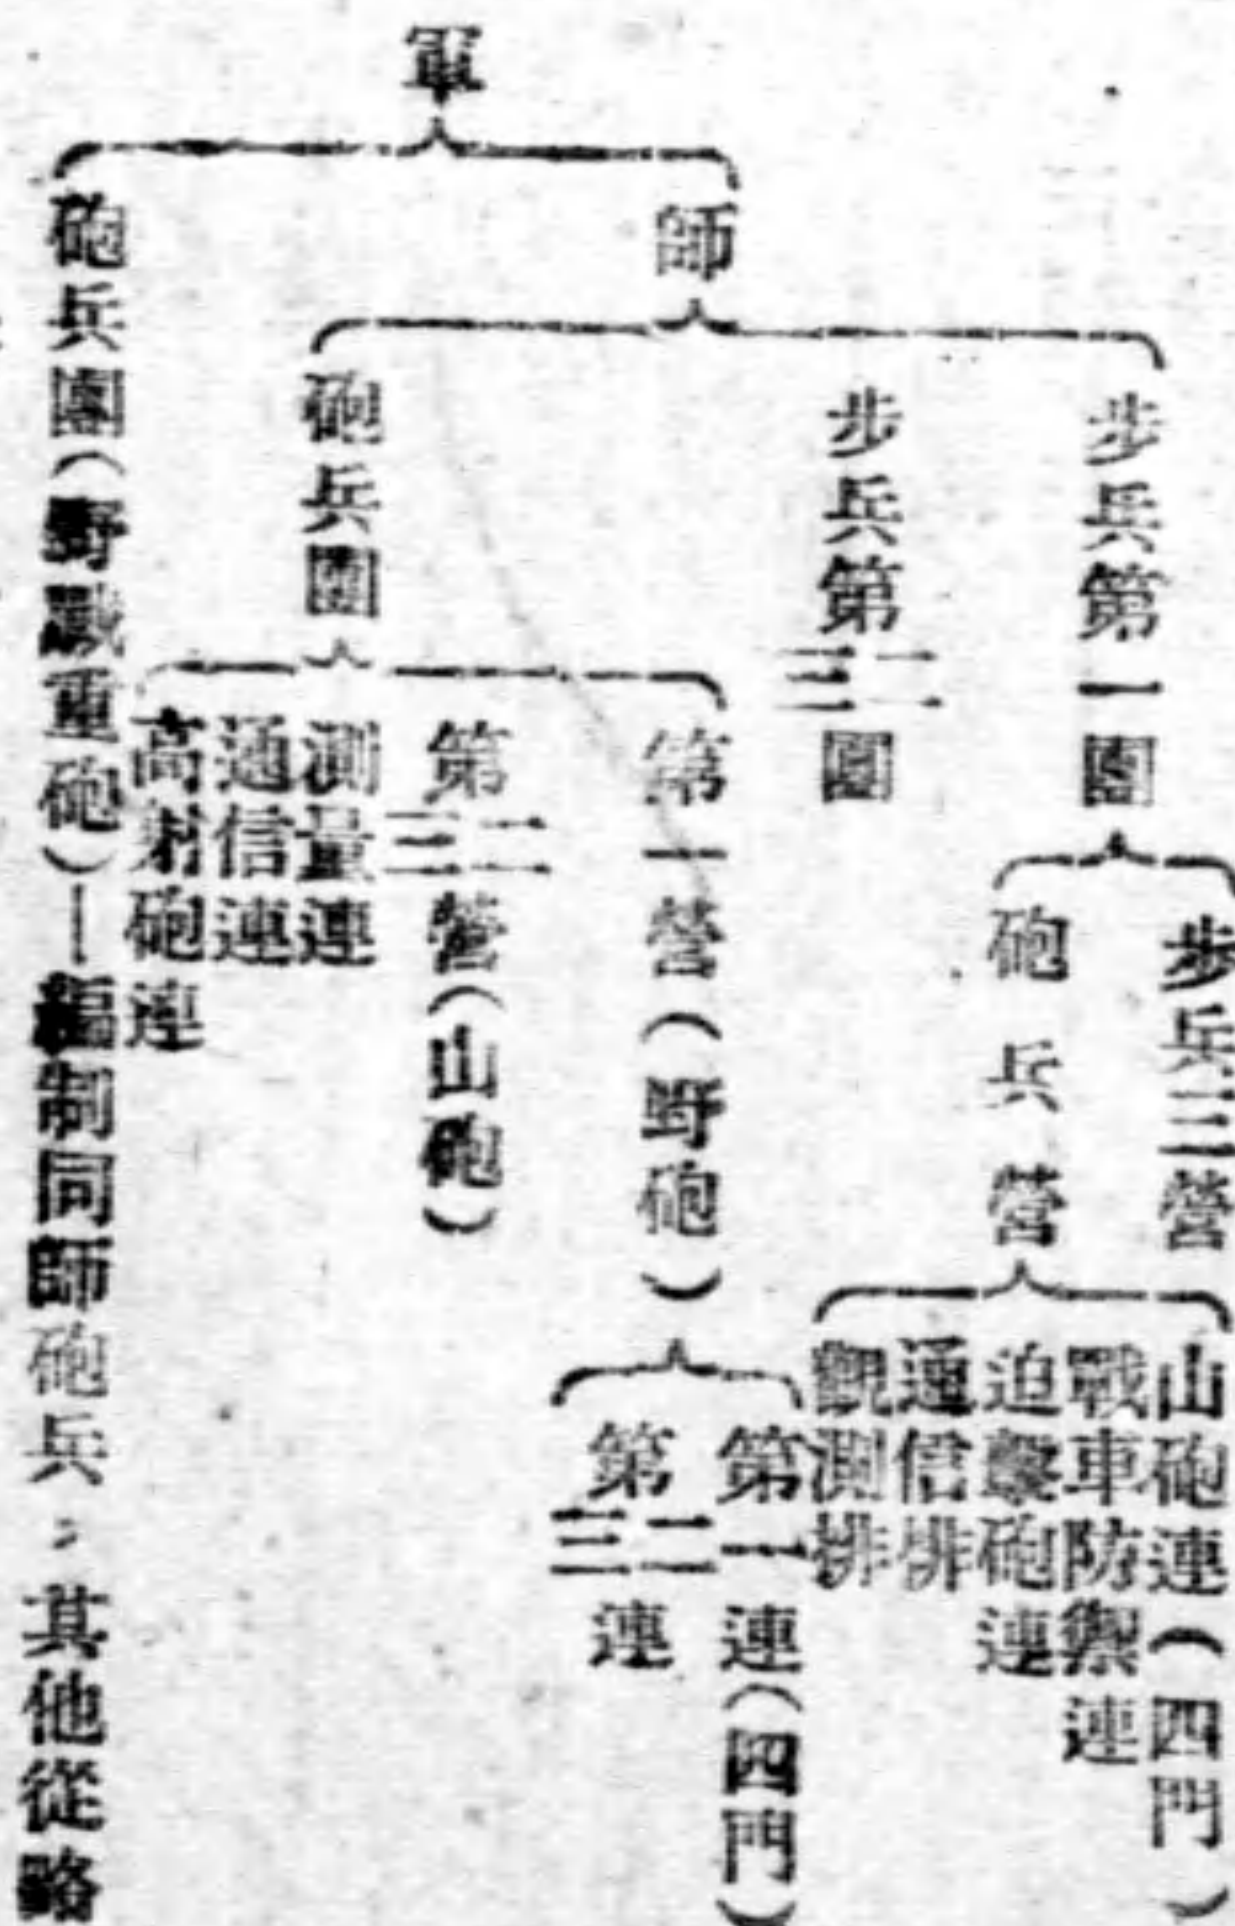 軍
師
步兵第一團
步兵三營
砲兵營
山砲連(四門)
戰車防禦連
迫擊砲連
通信排
觀測排
步兵第二三團
砲兵團
第一營(野砲)
第一連(四門)
第二三連
第二三營(山砲)
測量連
通信連
高射砲連
砲兵團(野戰重砲)—編制同師砲兵;其他從略